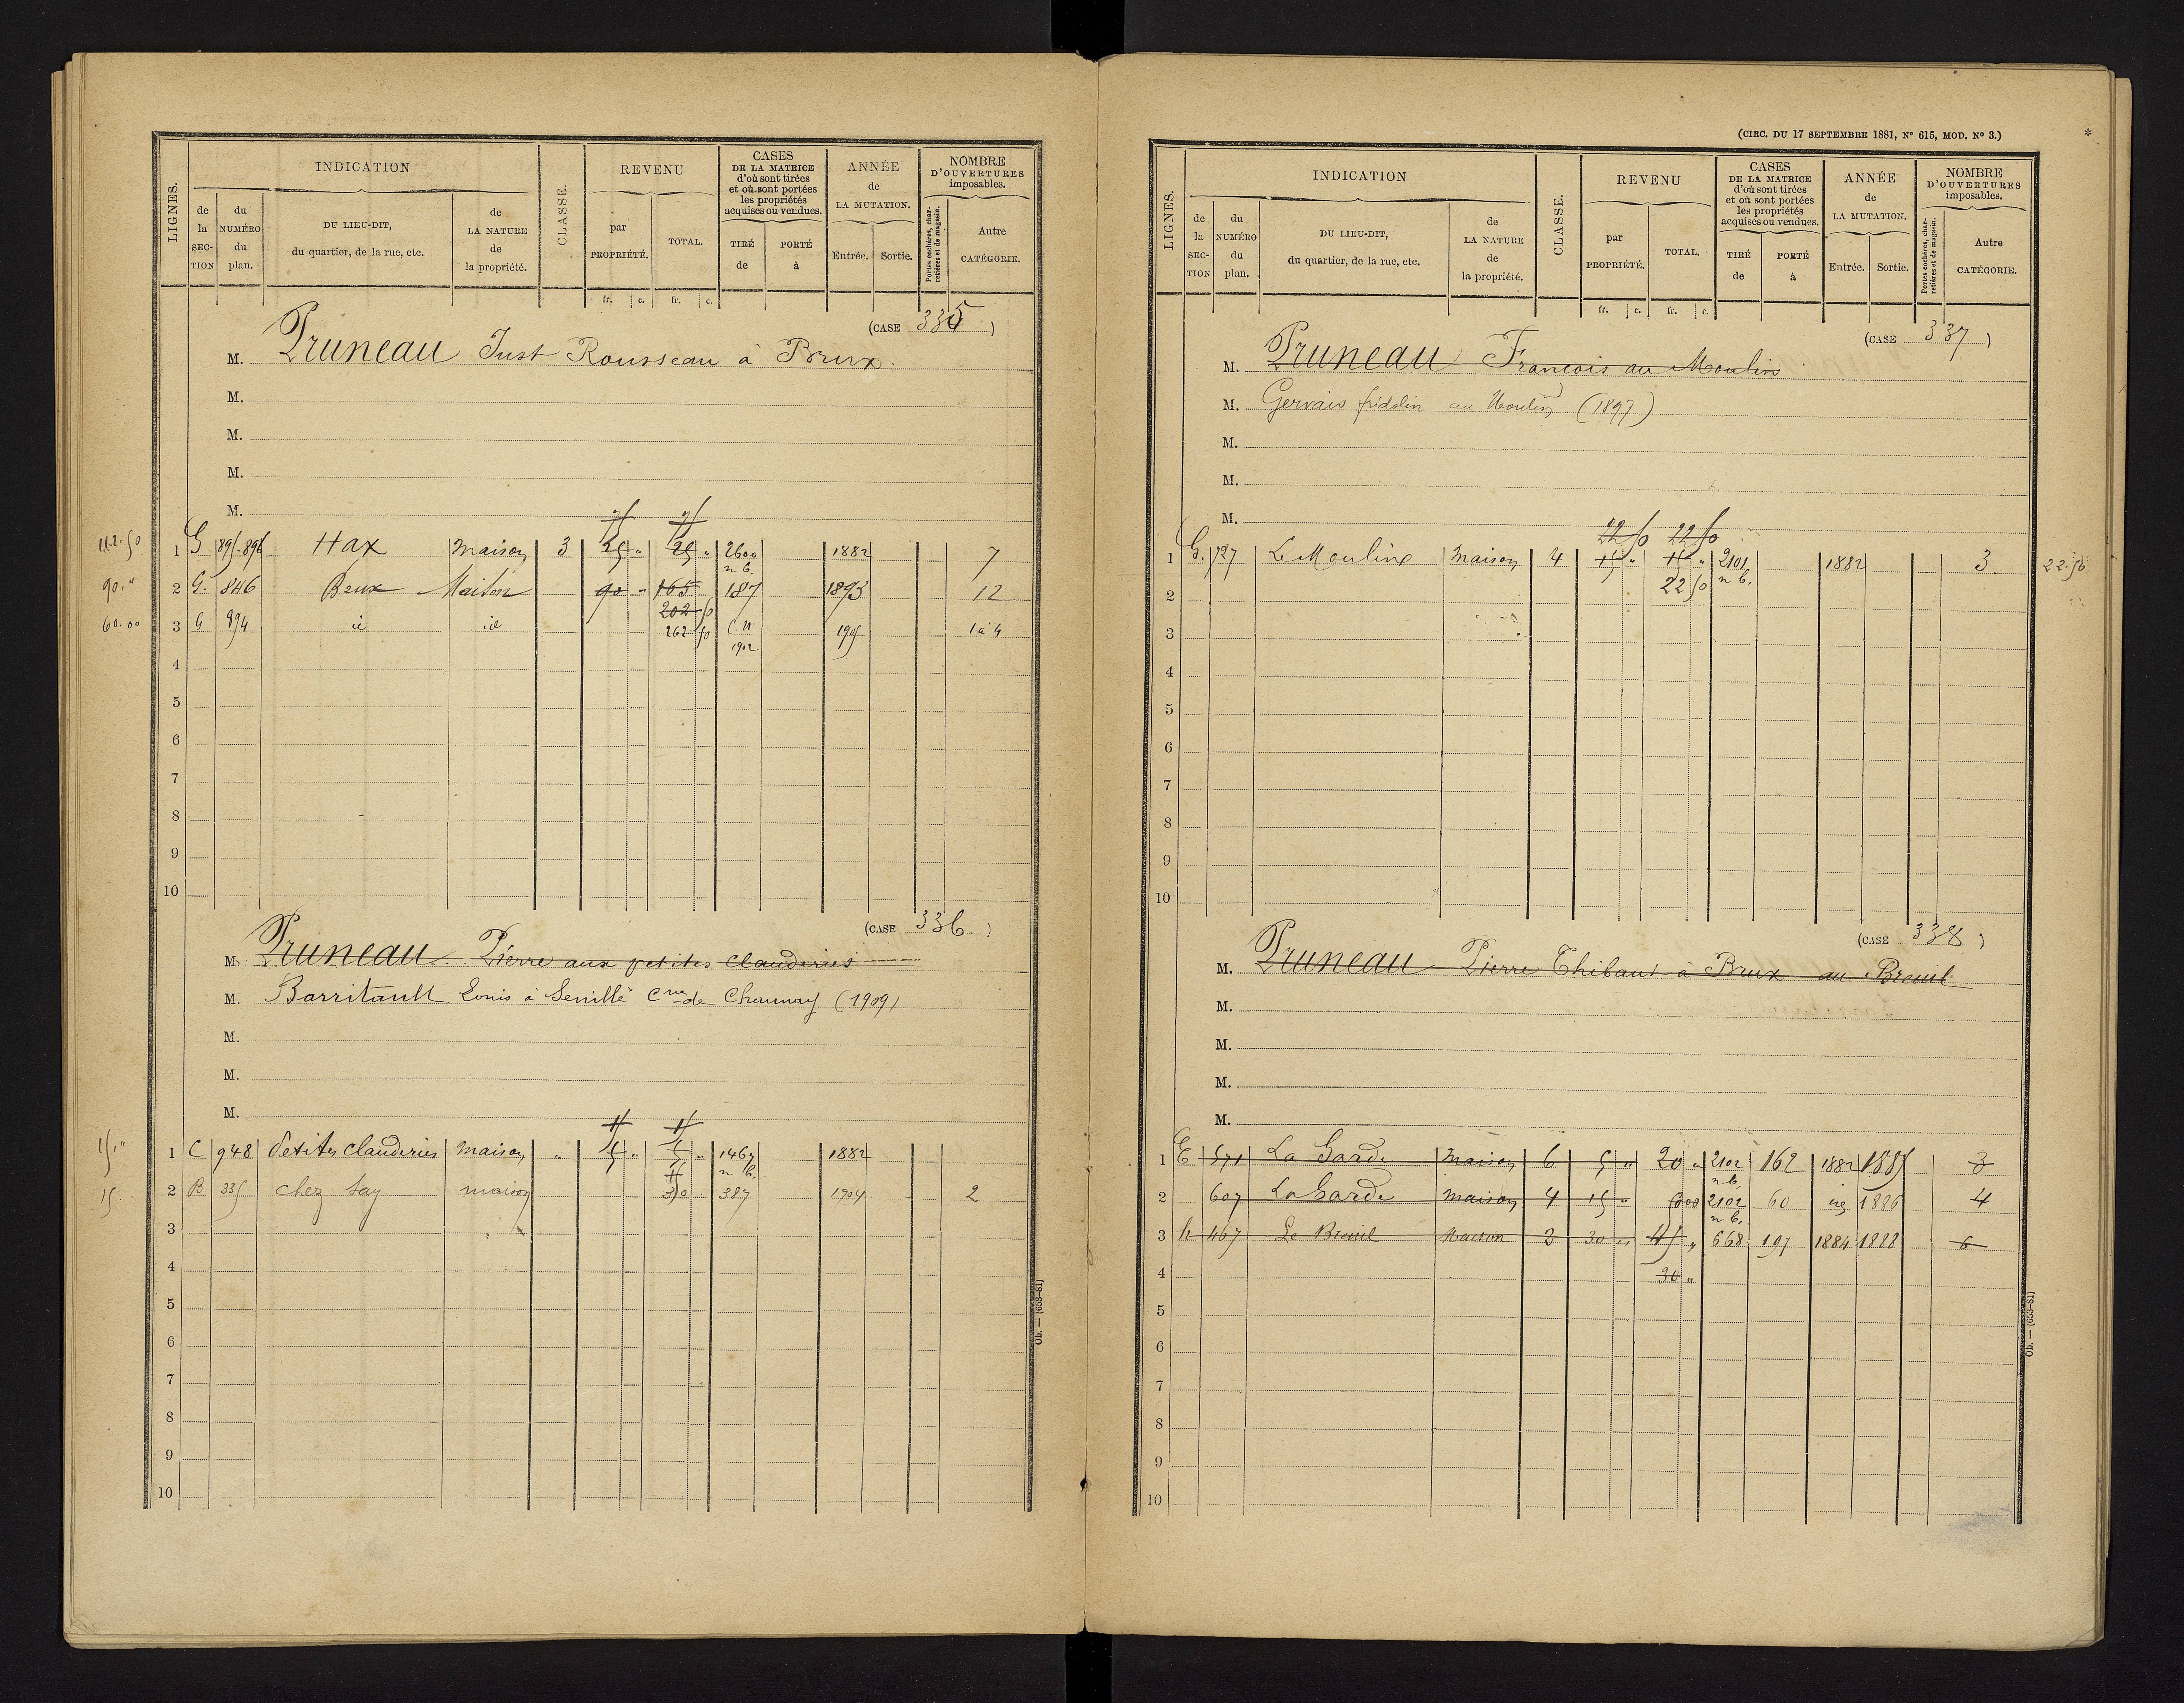 LIGNES.
INDICATION
de la SECTION
du NUMÉRO du plan.
DU LIEU-DIT, du quartier, de la rue, etc.
de LA NATURE de la propriété.
CLASSE.
REVENU
par PROPRIÉTÉ.
TOTAL.
fr. c. fr. c.
CASES DE LA MATRICE d'où sont tirées et où sont portées les propriétés acquises ou vendues.
TIRÉ de
PORTÉ à
ANNÉE de LA MUTATION.
Entrée. Sortie.
NOMBRE D'OUVERTURES imposables.
Portes cochères, charretières et de magasin.
Autre CATÉGORIE.
(CASE 335)
M. Pruneau Just Rousseau à Brux.
M.
M.
M.
M.
112.50 1 G 895-896 Hax Maison 3 25 " 25 " 2600 n b. 1882 7
90." 2 G. 846 Beux Maison 90 " 165 187 1893 12
202 50
60.00 3 G 894 id id 262 50 C.N. 1902 1905 1 à 4
4
5
6
7
8
9
10
(CASE 336.)
M. Pruneau Pierre aux petites Clauderies
M. Barritault Louis à Senillé Cne de Chaunay (1909)
M.
M.
M.
15," 1 C 948 Petites Clauderies Maison " 5 " 5 " 1467 n b. 1882
15. 2 B 335 chez Say maison 30 387 1904 2
3
4
5
6
7
8
9
10
Ob. — (653-81)
(CIRC. DU 17 SEPTEMBRE 1881, N° 615, MOD. N° 3.)
*
LIGNES.
INDICATION
de la SECTION
du NUMÉRO du plan.
DU LIEU-DIT, du quartier, de la rue, etc.
de LA NATURE de la propriété.
CLASSE.
REVENU
par PROPRIÉTÉ.
TOTAL.
fr. c. fr. c.
CASES DE LA MATRICE d'où sont tirées et où sont portées les propriétés acquises ou vendues.
TIRÉ de
PORTÉ à
ANNÉE de LA MUTATION.
Entrée. Sortie.
NOMBRE D'OUVERTURES imposables.
Portes cochères, charretières et de magasin.
Autre CATÉGORIE.
(CASE 337)
M. Pruneau François au Moulin
M. Gervais fridolin au Moulin (1897)
M.
M.
M.
22 50 22 50
1 G. 727 Le Moulin Maison 4 15 " 15 " 2101 n b. 1882 3. 22.50
2 22 50
3
4
5
6
7
8
9
10
(CASE 338)
M. Pruneau Pierre Thibaut à Brux au Breuil
M.
M.
M.
M.
1 E 571 La Garde Maison 6 5 " 20 " 2102 n b. 162 1882 1885 3
2 607 La Garde Maison 4 15 " 2102 n b. 60 1886 4
3 h 467 Le Breuil Maison 3 30 " 45 " 668 197 1884 1888 6
4 30 "
5
6
7
8
9
10
Ob. — (653-81)